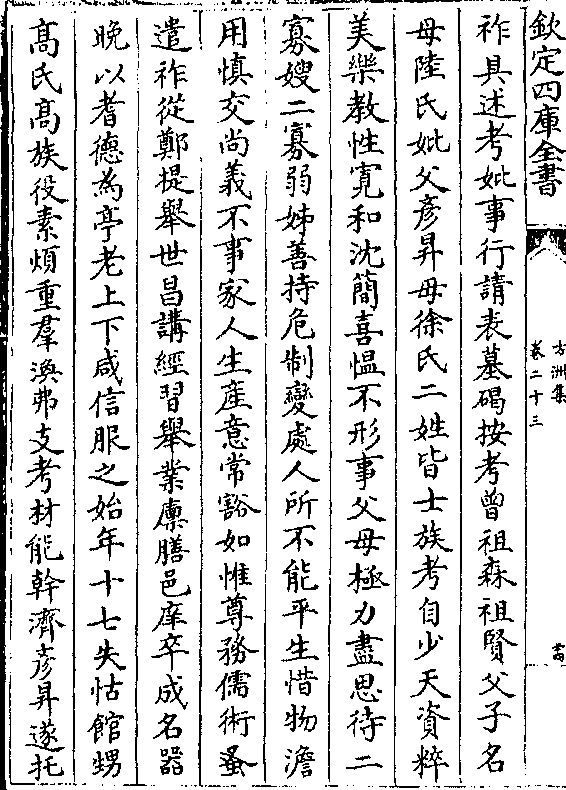 欽定四庫全書
方洲集
卷二十三
祚具述考妣事行請表墓碣按考曾祖森祖賢父子名
母陸氏妣父彥昇母徐氏二姓皆士族考自少天資粹
美樂教性寛和沈簡喜愠不形事父母極力盡思待二
寡嫂二寡弱姊善持危制變處人所不能平生惜物澹
用慎交尚義不事家人生産意常豁如惟尊務儒術蚤
遣祚從鄭提舉世昌講經習舉業廪膳邑庠卒成名器
晩以耆德為亭老上下咸信服之始年十七失怙館甥
髙氏髙族役素煩重羣渙弗支考材能幹濟彥昇遂托